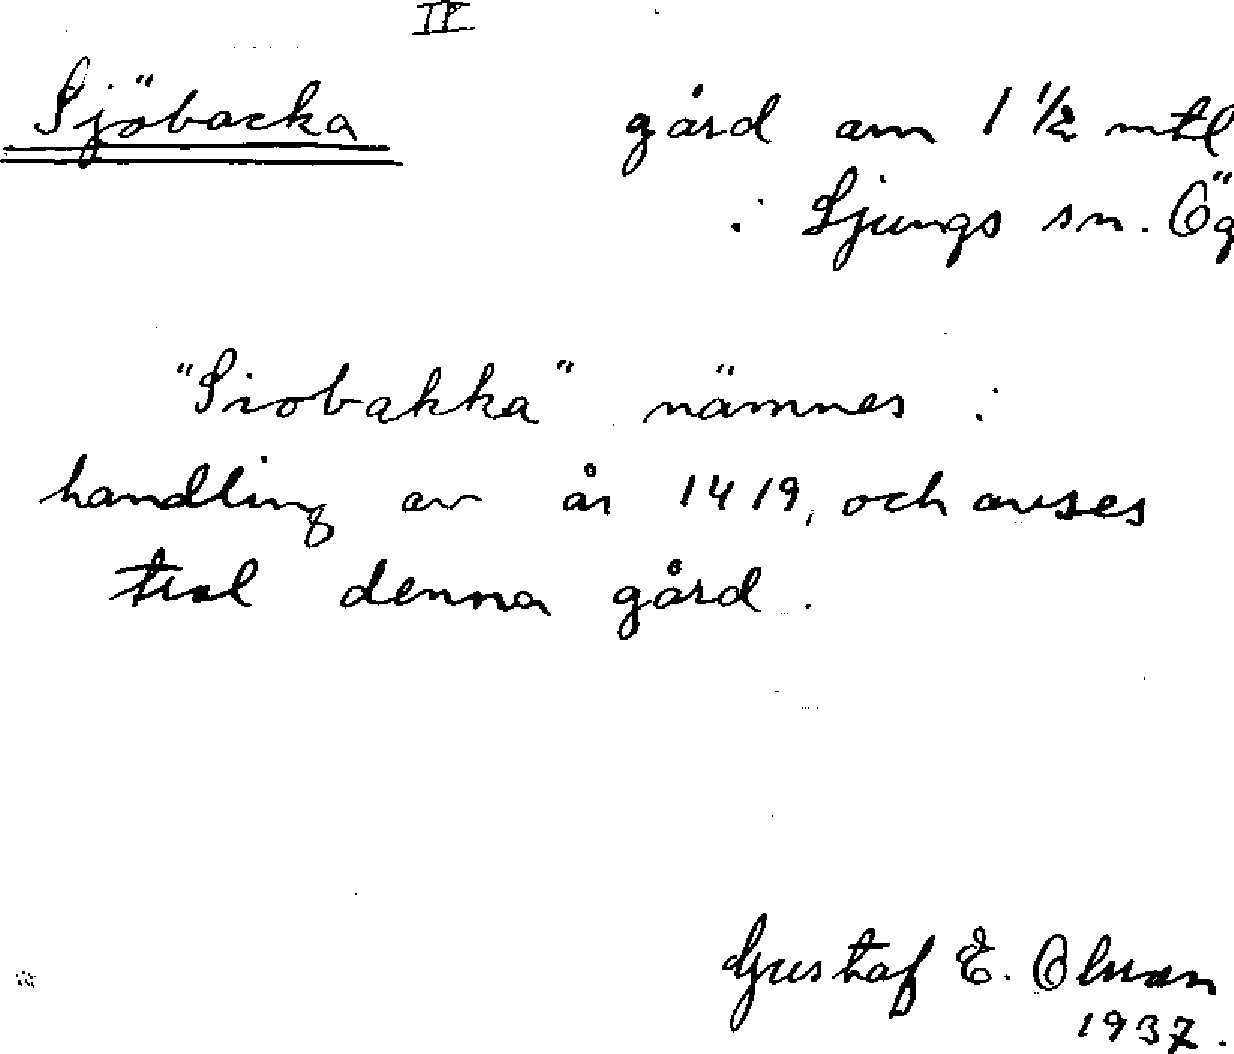 II
Sjöbacka gård om 1 1/2 mtl
i Ljungs sn. Ög
"Siobakka" nämnes i
handling av år 1419, och avses
trol denna gård.
Gustaf E. Olsson
1937.